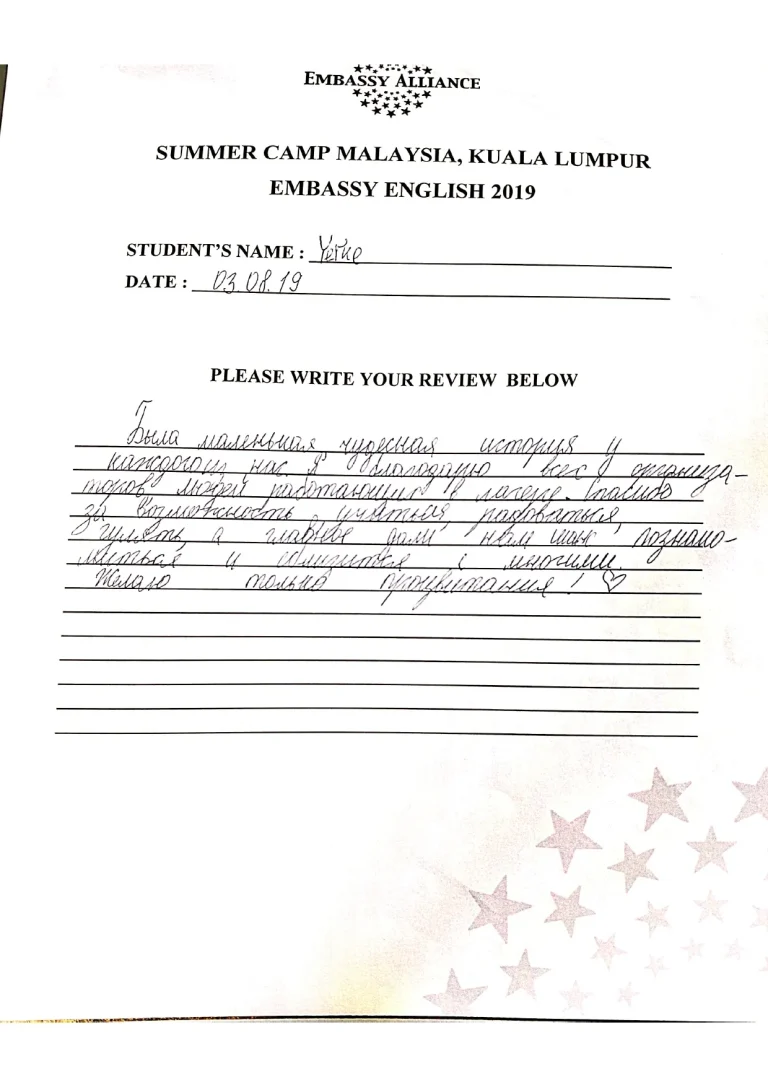 EMBASSY ALLIANCE
SUMMER CAMP MALAYSIA, KUALA LUMPUR
EMBASSY ENGLISH 2019
STUDENT'S NAME :
DATE : 03.08.19
PLEASE WRITE YOUR REVIEW BELOW
Была маленькая, чудесная история у
каждого из нас. Я благодарю всех организа-
торов, людей работающих в лагере. Спасибо
за возможность учиться, радоваться,
гулять, а главное дали нам шанс познако-
миться и сблизиться с многими.
Желаю только процветания! ♡